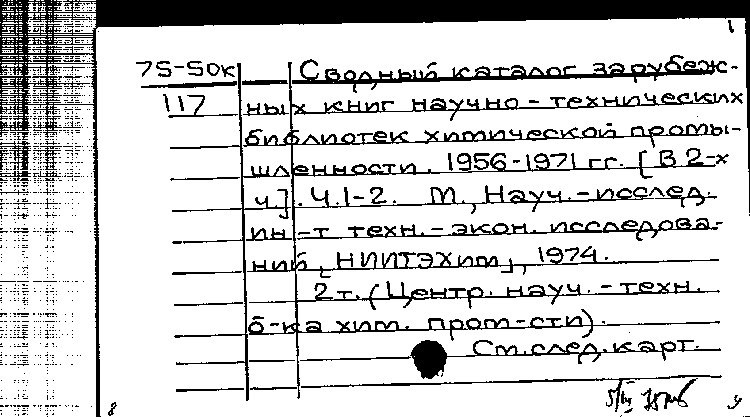 75-50к Сводный каталог зарубеж-
117 ных книг научно-технических
библиотек химической промы-
шленности. 1956-1971 гг. [В 2-х
ч]. Ч.1-2. М., Науч.-исслед.
ин-т техн.-экон. исследова-
ний [НИИТЭХим], 1974.
2т. (Центр. науч.-техн.
б-ка хим. пром-сти).
См.след.карт.
8